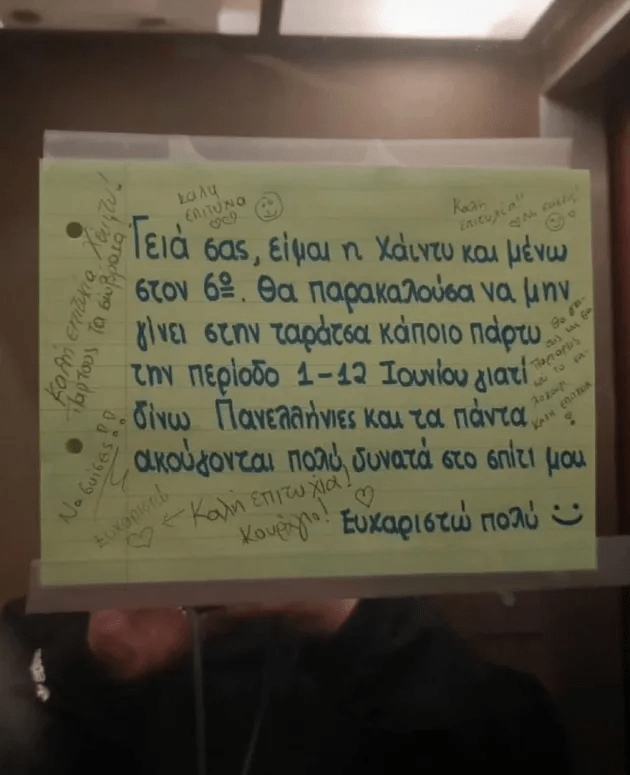 καλη
επιτυχια
Καλη
επιτυχία!!
Γειά σας, είμαι η Χάιντυ και μένω
στον 6º. Θα παρακαλούσα να μην
γίνει στην ταράτσα κάποιο πάρτυ
την περίοδο 1-12 Ιουνίου γιατί
δίνω Πανελλήνιες και τα πάντα
ακούγονται πολύ δυνατά στο σπίτι μου
Ευχαριστώ πολύ :)
Καλή επιτυχία Χάιντυ!
Παρτους τα σώβρακα
Να σκίσεις!!
ευχαριστώ
← Καλή επιτυχία!
Κουράγιο!
Καλη επιτυχια